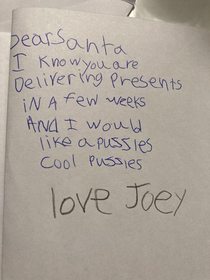 DearSanta
I know you are
Delivering Presents
in A few weeks
AND I would
like a pussies
cool pussies
love Joey